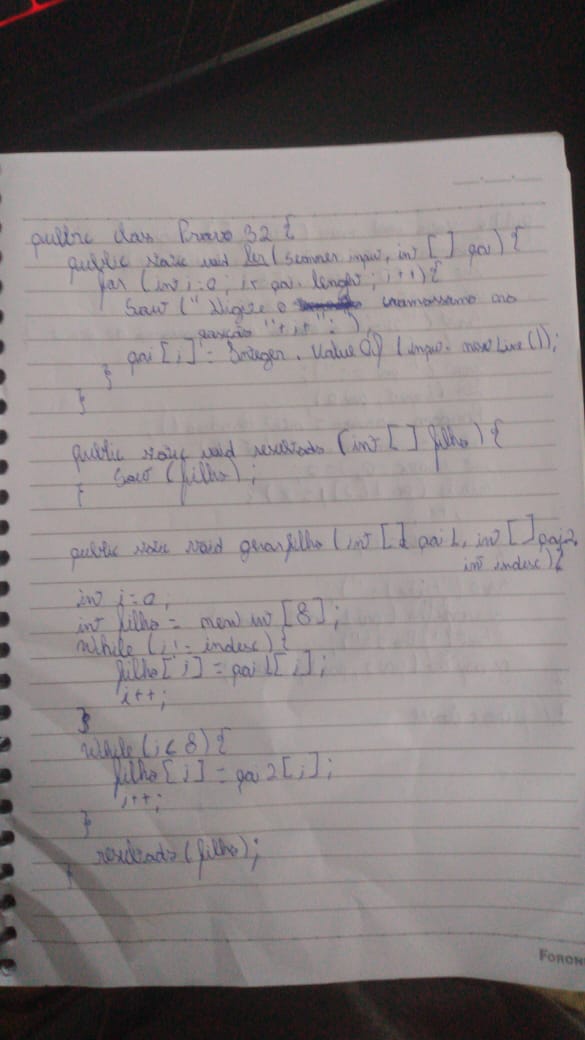 public class Prova 32 {
public static void ler (Scanner input, int [ ] pai) {
for (int i=0; i< pai. lenght; i++) {
Sout (" Digite o cromossomo na
posição "+i+" : ");
pai [i] = Integer. ValueOf (input. nextLine ());
}
}
public static void resultado (int [ ] filho) {
Sout (filho);
}
public static void gerarfilho (int [ ] pai 1, int [ ] pai2,
int index) {
int i=0;
int filho = new int [8];
While (i != index) {
filho [i] = pai 1[i];
i++;
}
While (i< 8) {
filho [i] = pai 2 [i];
i++;
}
resultado (filho);
}
FORONI